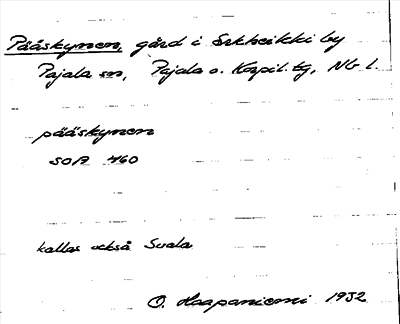 Pääskynen, gård i Erkheikki by
Pajala sn, Pajala o. Korpil. tg, Nb l.
pääskynen
SOA 460
kallas också Svala
O. Haapaniemi 1932